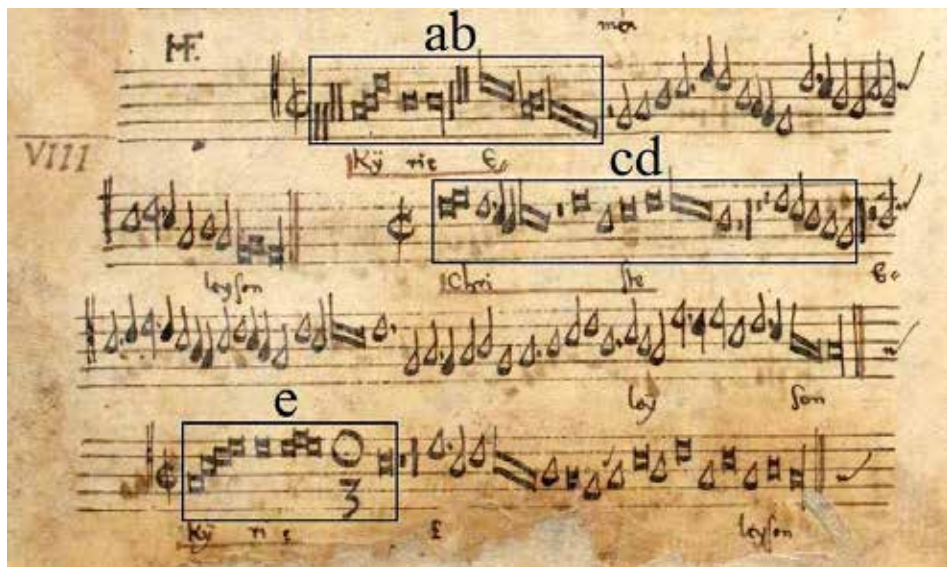 men
ab
HF.
VIII
Kÿ rie E
cd
leyson
Chri ste E
ley son
e
3
Kÿ rie E leyson